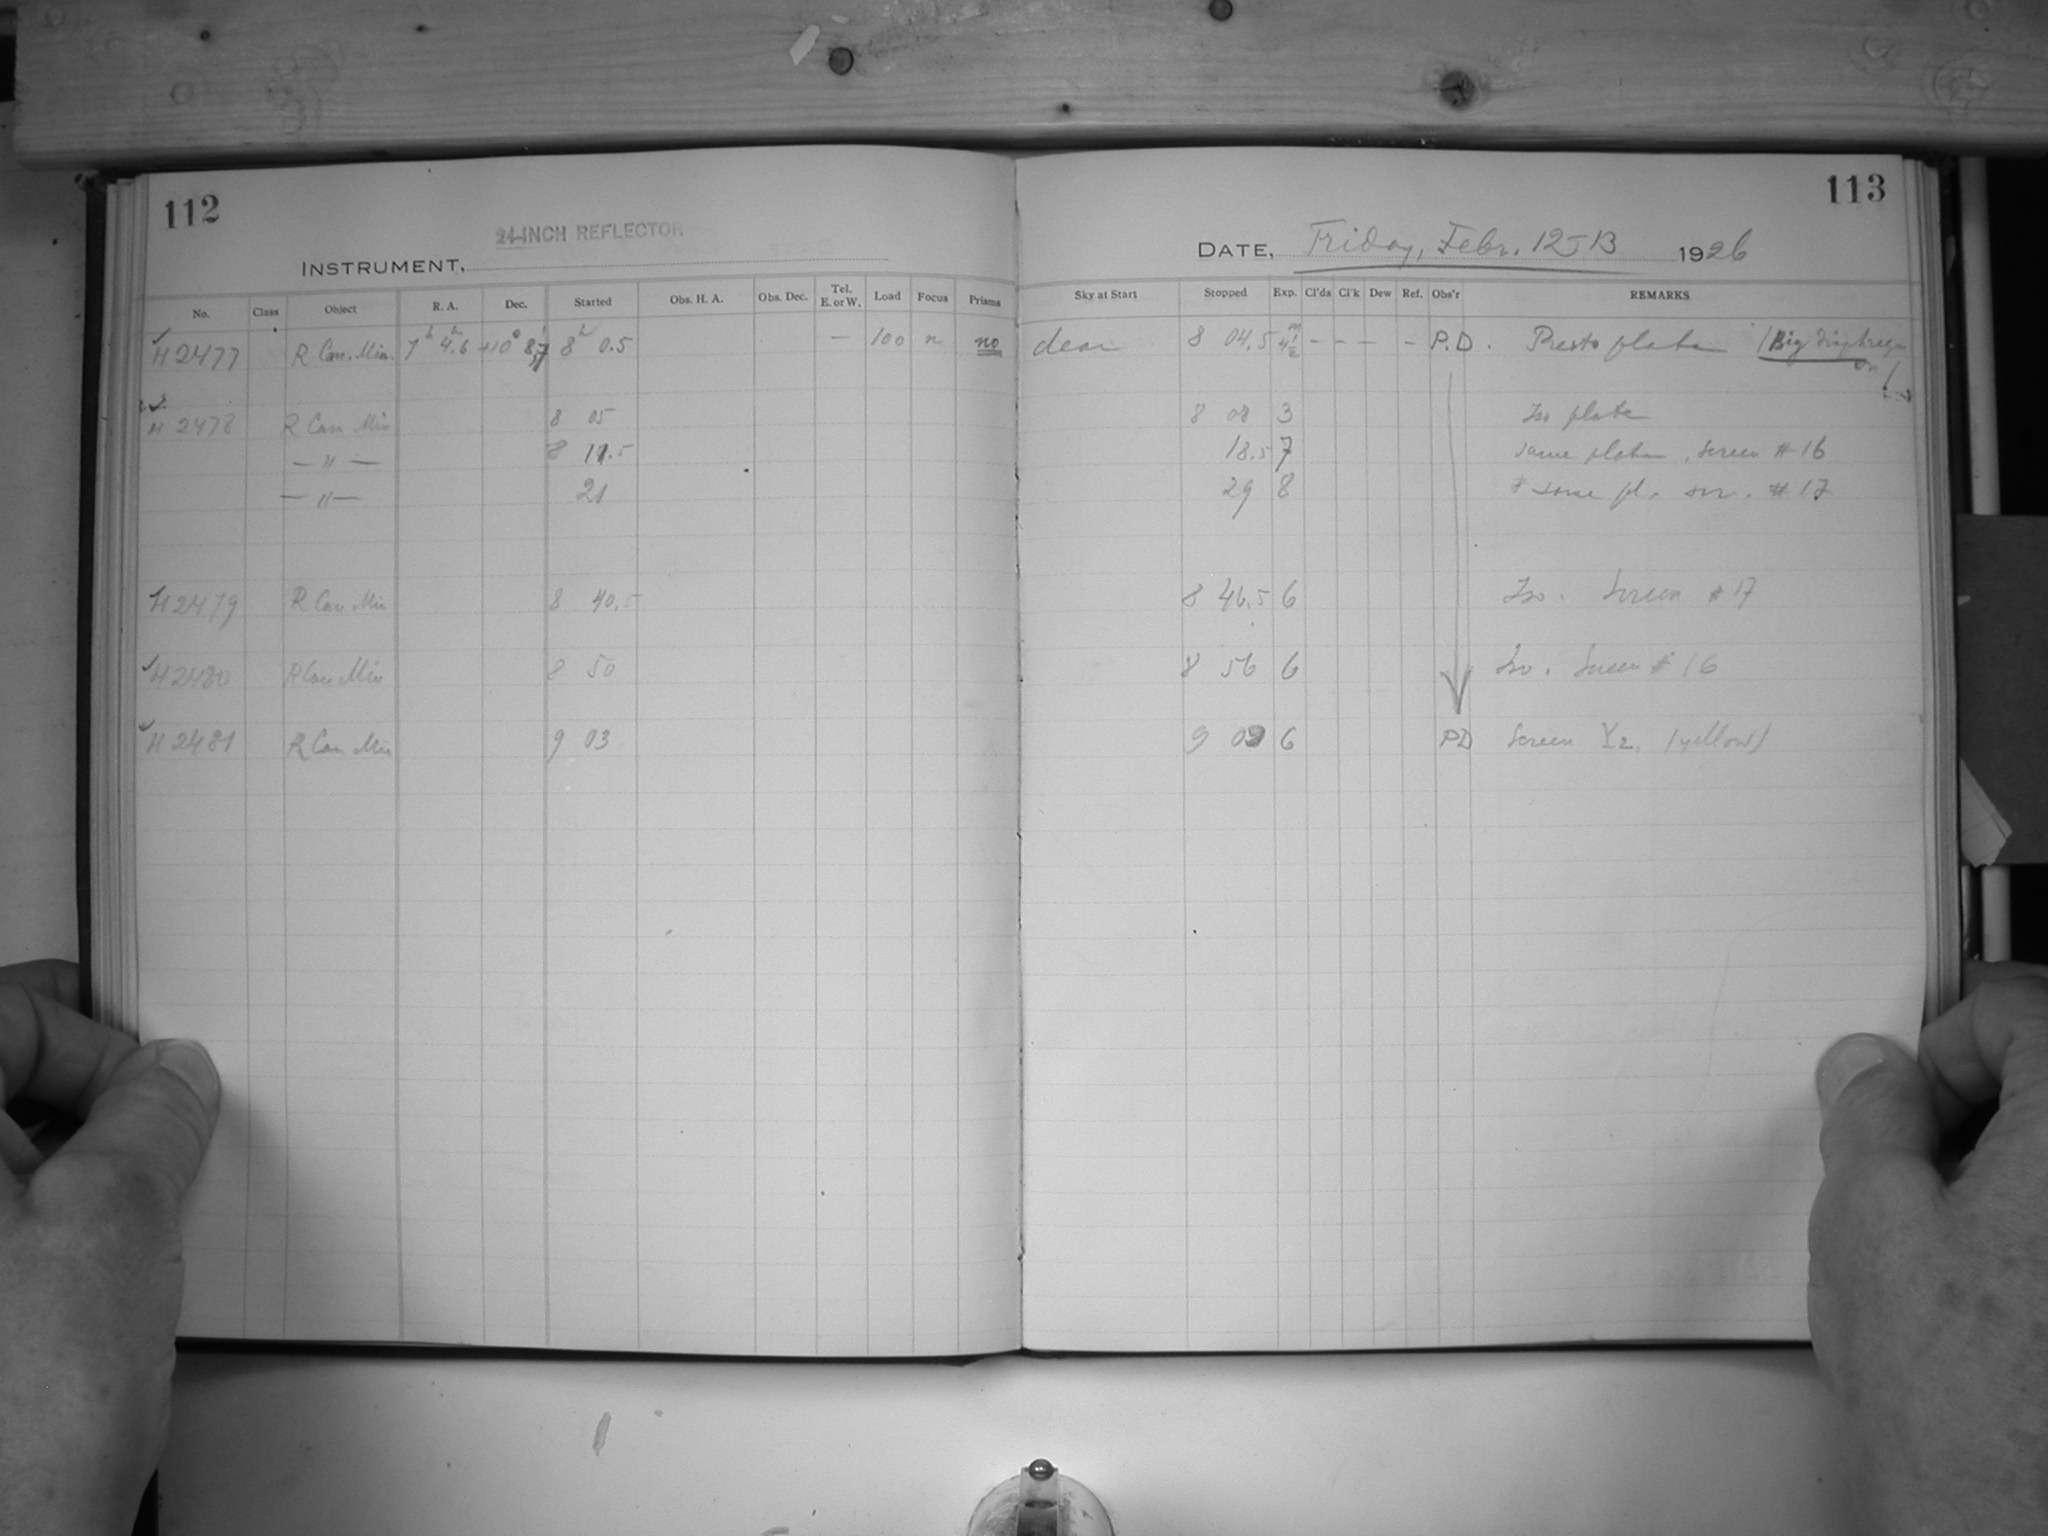 112
24-INCH REFLECTOR
INSTRUMENT,
No. Class Object R. A. Dec. Started Obs. H. A. Obs. Dec. Tel. E. or W. Load Focus Prisms
H 2477 R Can. Min. 7h 4.6 +10° 8h 0.5 — 100 n no
H 2478 R Can Min 8 05
— " — 8 11.5
— " — 21
H 2479 R Can Min 8 40.5
H 2480 R Can Min 8 50
H 2481 R Can Min 9 03
113
DATE, Friday, Febr. 12 1926
Sky at Start Stopped Exp. Cl'ds Cl'k Dew Ref. Obs'r REMARKS
clear 8 04.5 4½ m - - - - P.D. Presto plate (Big diaphragm on)
8 08 3 Iso plate
18.5 7 same plate, screen # 16
29 8 same pl. scr. # 17
8 46.5 6 Iso. Screen # 17
8 56 6 Iso. Screen # 16
9 09 6 PD Screen Y2, (yellow)